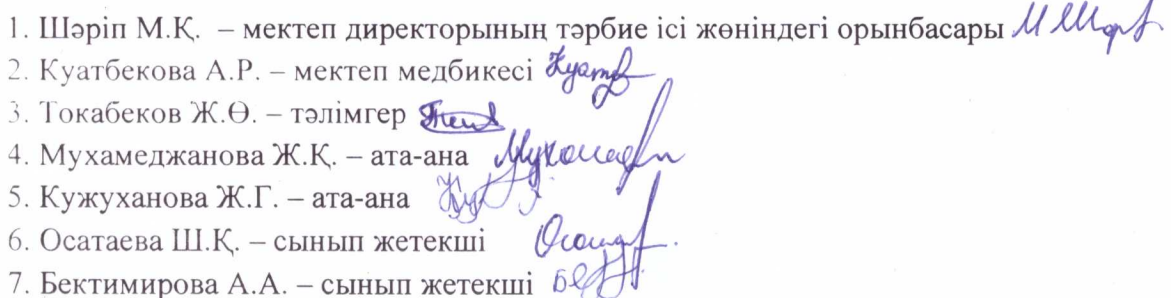 1. Шәріп М.Қ. – мектеп директорының тәрбие ісі жөніндегі орынбасары
2. Куатбекова А.Р. – мектеп медбикесі
3. Токабеков Ж.Ө. – тәлімгер
4. Мухамеджанова Ж.Қ. – ата-ана
5. Кужуханова Ж.Г. – ата-ана
6. Осатаева Ш.Қ. – сынып жетекші
7. Бектимирова А.А. – сынып жетекші